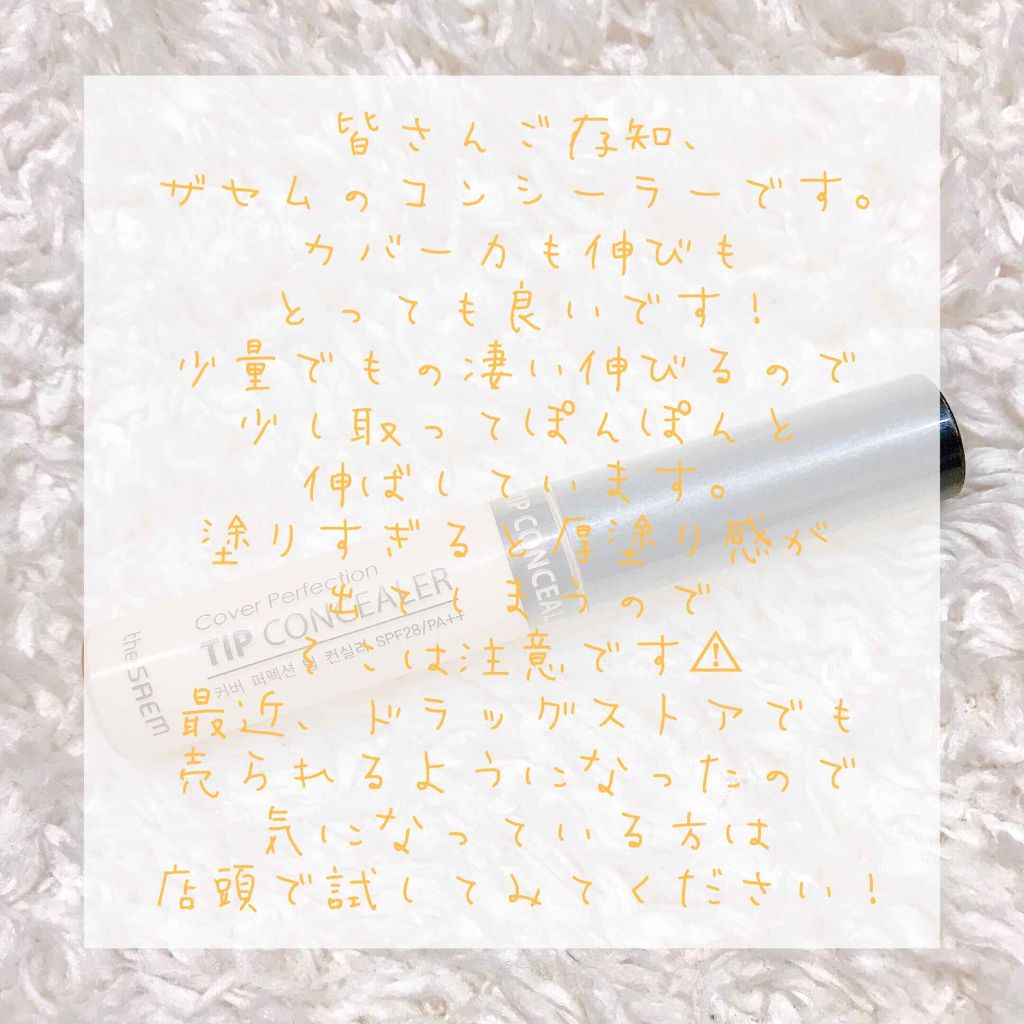 皆さんご存知、
ザセムのコンシーラーです。
カバー力も伸びも
とっても良いです！
少量でもの凄い伸びるので
少し取ってぽんぽんと
伸ばしています。
塗りすぎると厚塗り感が
出てしまうので
そこは注意です⚠
最近、ドラッグストアでも
売られるようになったので
気になっている方は
店頭で試してみてください！
Cover Perfection
TIP CONCEALER
커버 퍼펙션 팁 컨실러 SPF28/PA++
the SAEM
TIP CONCEAL